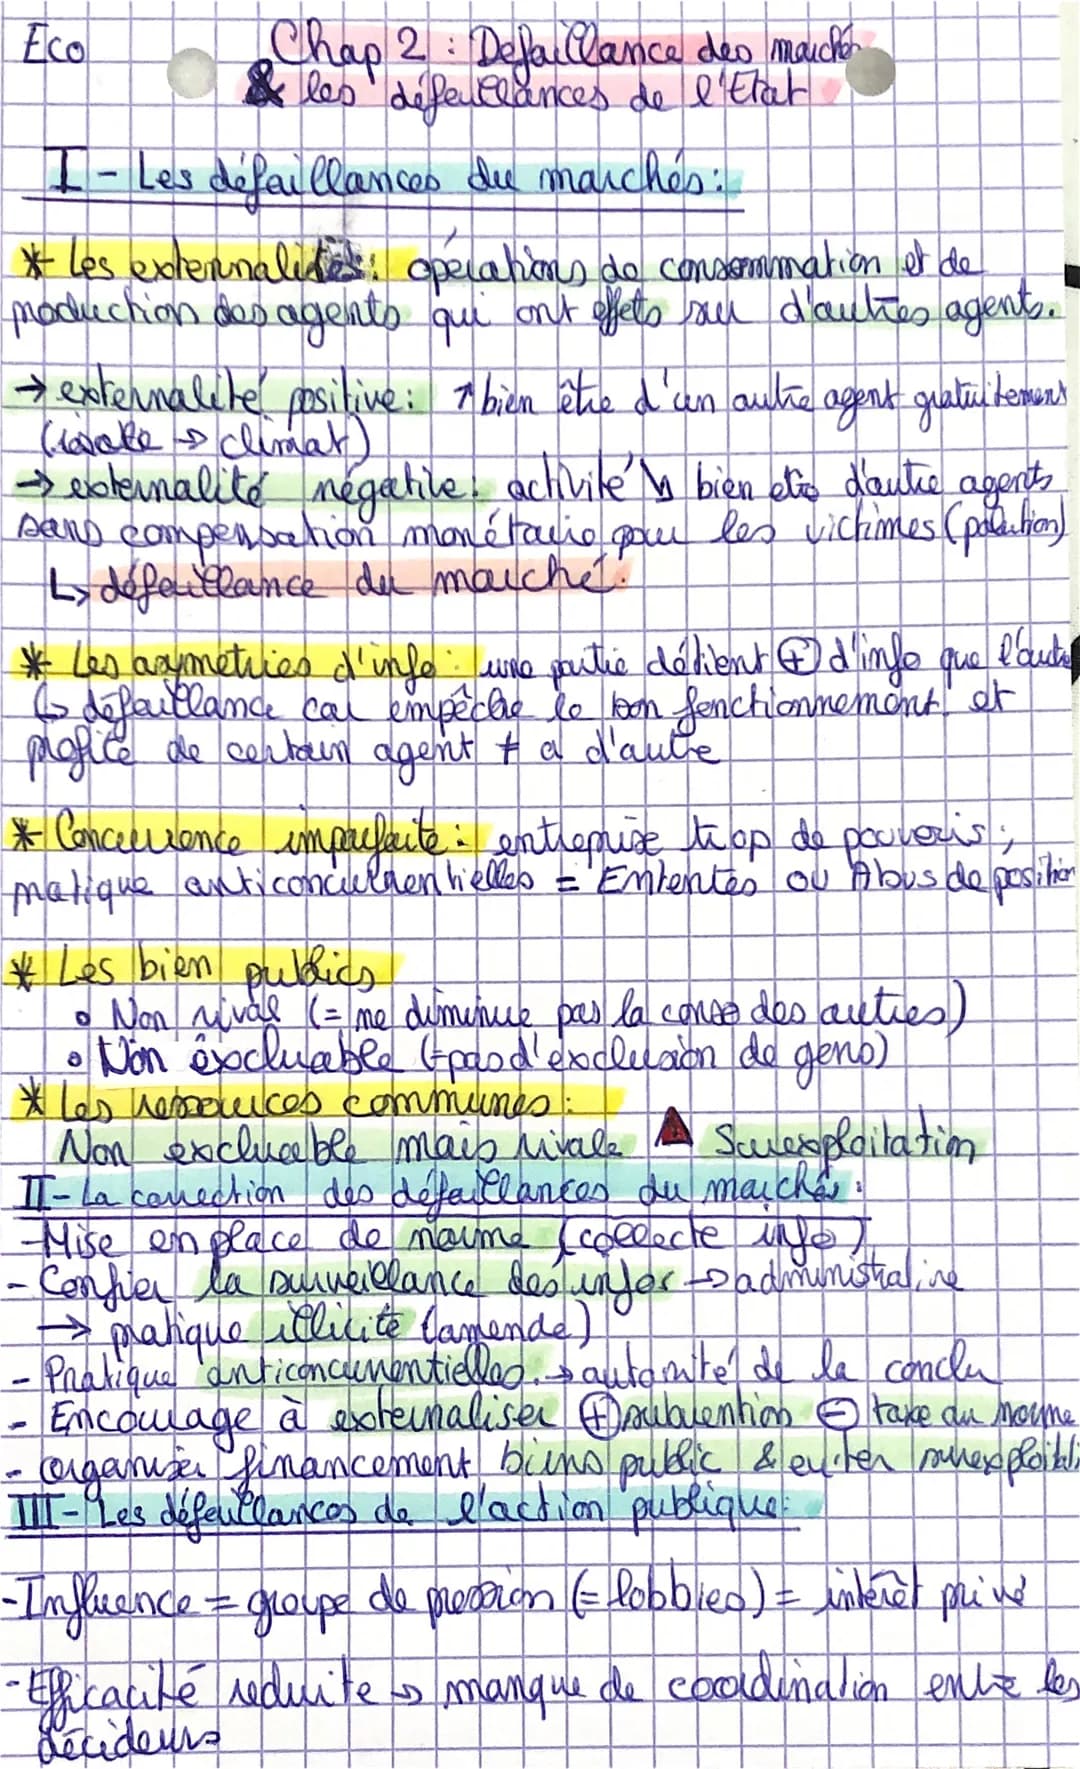 Eco
Chap 2 : Defaillance des marchés
& les défaillances de l'Etat
I - Les défaillances du marchés :
* Les externnalités : opérations de consommation et de
production des agents qui ont effets sur d'autres agents.
→ externalité positive : ↗ bien être d'un autre agent gratuitement
→ climat)
→ externalité négative : activité ↘ bien etre d'autre agents
sans compensation monétaire pour les victimes (pollution)
↳ défaillance du marché.
* Les asymetries d'info : une partie détient ⊕ d'info que l'autre
↳ défaillance car empêche le bon fonctionnement et
profite de certain agent ≠ a d'autre
* Concurrence imparfaite : entreprise trop de pouvoirs ;
pratique anticoncurrentielles = Ententes ou Abus de position
* Les bien publics
• Non rival (= ne diminue pas la conso des autres)
• Non excluable (= pas d'exclusion de gens)
* Les ressources communes :
Non excluable mais rivale ⚠ Surexploitation
II - La correction des défaillances du marchés :
- Mise en place de norme (collecte info)
- Confier la surveillance des infos → administrative
→ pratique illicite (amende)
- Pratique anticoncurrentielles → automité de la conclu
- Encourage à externaliser ⊕ subvention ⊖ taxe du norme
- organiser financement biens public & eviter surexploitati
III - Les défaillances de l'action publique :
- Influence = groupe de pression (= lobbies) = intérêt privé
- Efficacité reduite → manque de coordination entre les
décideurs